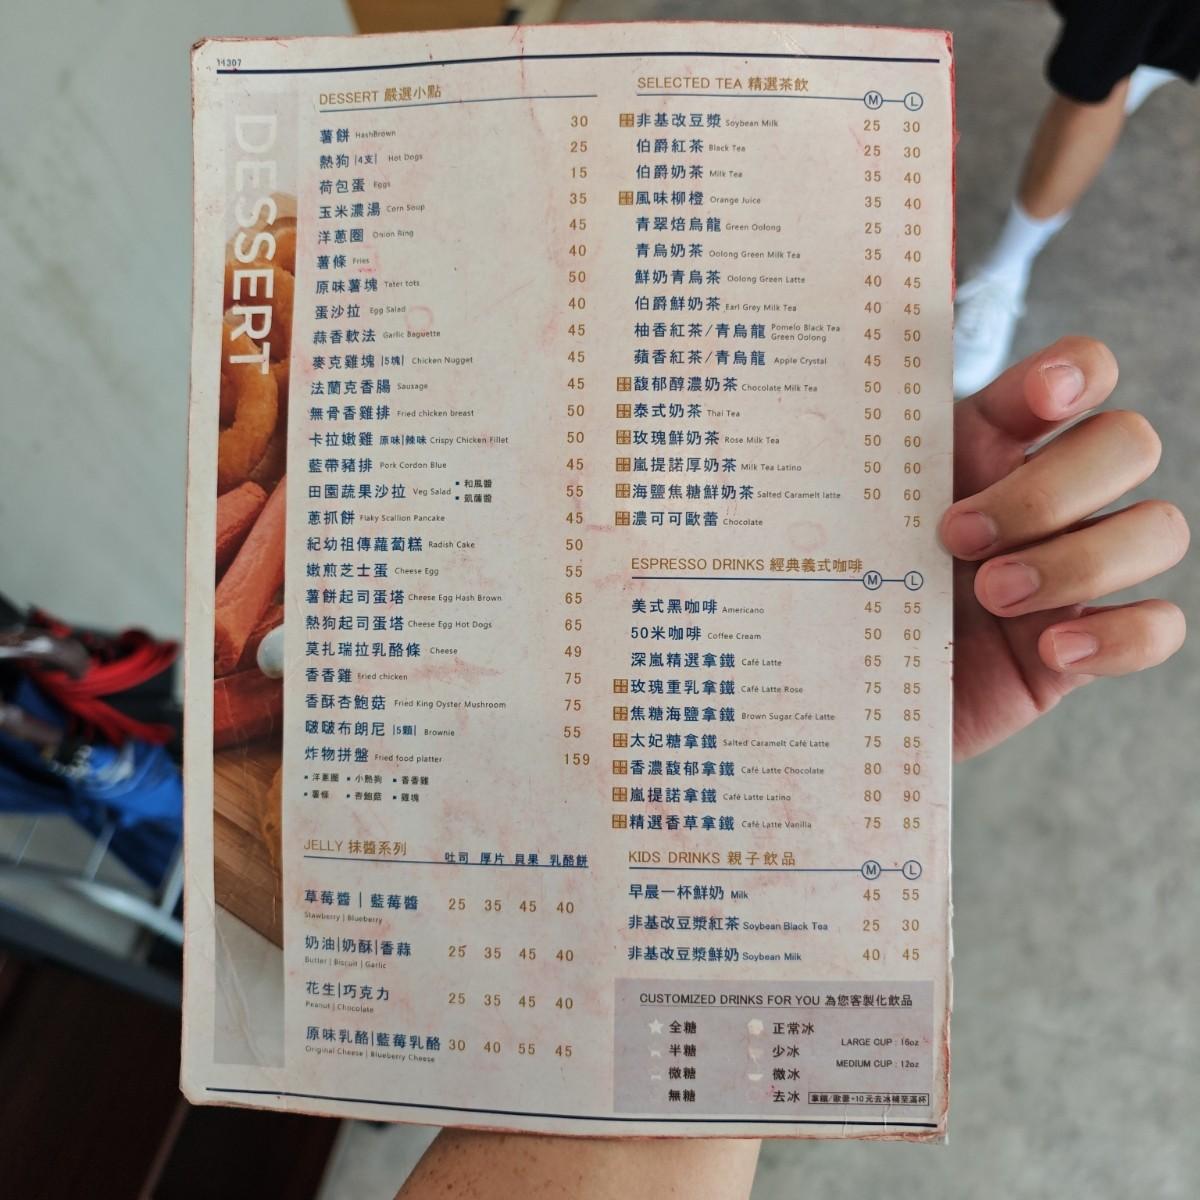 11307
DESSERT
DESSERT 嚴選小點
薯餅 HashBrown 30
熱狗 |4支| Hot Dogs 25
荷包蛋 Eggs 15
玉米濃湯 Corn Soup 35
洋蔥圈 Onion Ring 45
薯條 Fries 40
原味薯塊 Tater tots 50
蛋沙拉 Egg Salad 40
蒜香軟法 Garlic Baguette 45
麥克雞塊 |5塊| Chicken Nugget 45
法蘭克香腸 Sausage 45
無骨香雞排 Fried chicken breast 50
卡拉嫩雞 原味|辣味 Crispy Chicken Fillet 50
藍帶豬排 Pork Cordon Blue 45
田園蔬果沙拉 Veg Salad ▪ 和風醬 ▪ 凱薩醬 55
蔥抓餅 Flaky Scallion Pancake 45
紀幼祖傳蘿蔔糕 Radish Cake 50
嫩煎芝士蛋 Cheese Egg 55
薯餅起司蛋塔 Cheese Egg Hash Brown 65
熱狗起司蛋塔 Cheese Egg Hot Dogs 65
莫扎瑞拉乳酪條 Cheese 49
香香雞 Fried chicken 75
香酥杏鮑菇 Fried King Oyster Mushroom 75
啵啵布朗尼 |5顆| Brownie 55
炸物拼盤 Fried food platter 159
▪ 洋蔥圈 ▪ 小熱狗 ▪ 香香雞
▪ 薯條 ▪ 杏鮑菇 ▪ 雞塊
JELLY 抹醬系列 吐司 厚片 貝果 乳酪餅
草莓醬 | 藍莓醬 25 35 45 40
Stawberry | Blueberry
奶油|奶酥|香蒜 25 35 45 40
Butter | Biscuit | Garlic
花生|巧克力 25 35 45 40
Peanut | Chocolate
原味乳酪|藍莓乳酪 30 40 55 45
Original Cheese | Blueberry Cheese
SELECTED TEA 精選茶飲 M L
非基改豆漿 Soybean Milk 25 30
伯爵紅茶 Black Tea 25 30
伯爵奶茶 Milk Tea 35 40
風味柳橙 Orange Juice 35 40
青翠焙烏龍 Green Oolong 25 30
青烏奶茶 Oolong Green Milk Tea 35 40
鮮奶青烏茶 Oolong Green Latte 40 45
伯爵鮮奶茶 Earl Grey Milk Tea 40 45
柚香紅茶/青烏龍 Pomelo Black Tea Green Oolong 45 50
蘋香紅茶/青烏龍 Apple Crystal 45 50
馥郁醇濃奶茶 Chocolate Milk Tea 50 60
泰式奶茶 Thai Tea 50 60
玫瑰鮮奶茶 Rose Milk Tea 50 60
嵐提諾厚奶茶 Milk Tea Latino 50 60
海鹽焦糖鮮奶茶 Salted Caramelt latte 50 60
濃可可歐蕾 Chocolate 75
ESPRESSO DRINKS 經典義式咖啡 M L
美式黑咖啡 Americano 45 55
50米咖啡 Coffee Cream 50 60
深嵐精選拿鐵 Café Latte 65 75
玫瑰重乳拿鐵 Café Latte Rose 75 85
焦糖海鹽拿鐵 Brown Sugar Café Latte 75 85
太妃糖拿鐵 Salted Caramelt Café Latte 75 85
香濃馥郁拿鐵 Café Latte Chocolate 80 90
嵐提諾拿鐵 Café Latte Latino 80 90
精選香草拿鐵 Café Latte Vanilla 75 85
KIDS DRINKS 親子飲品 M L
早晨一杯鮮奶 Milk 45 55
非基改豆漿紅茶 Soybean Black Tea 25 30
非基改豆漿鮮奶 Soybean Milk 40 45
CUSTOMIZED DRINKS FOR YOU 為您客製化飲品
全糖 正常冰
半糖 少冰 LARGE CUP : 16oz
微糖 微冰 MEDIUM CUP : 12oz
無糖 去冰 拿鐵/歐蕾+10元去冰補至滿杯